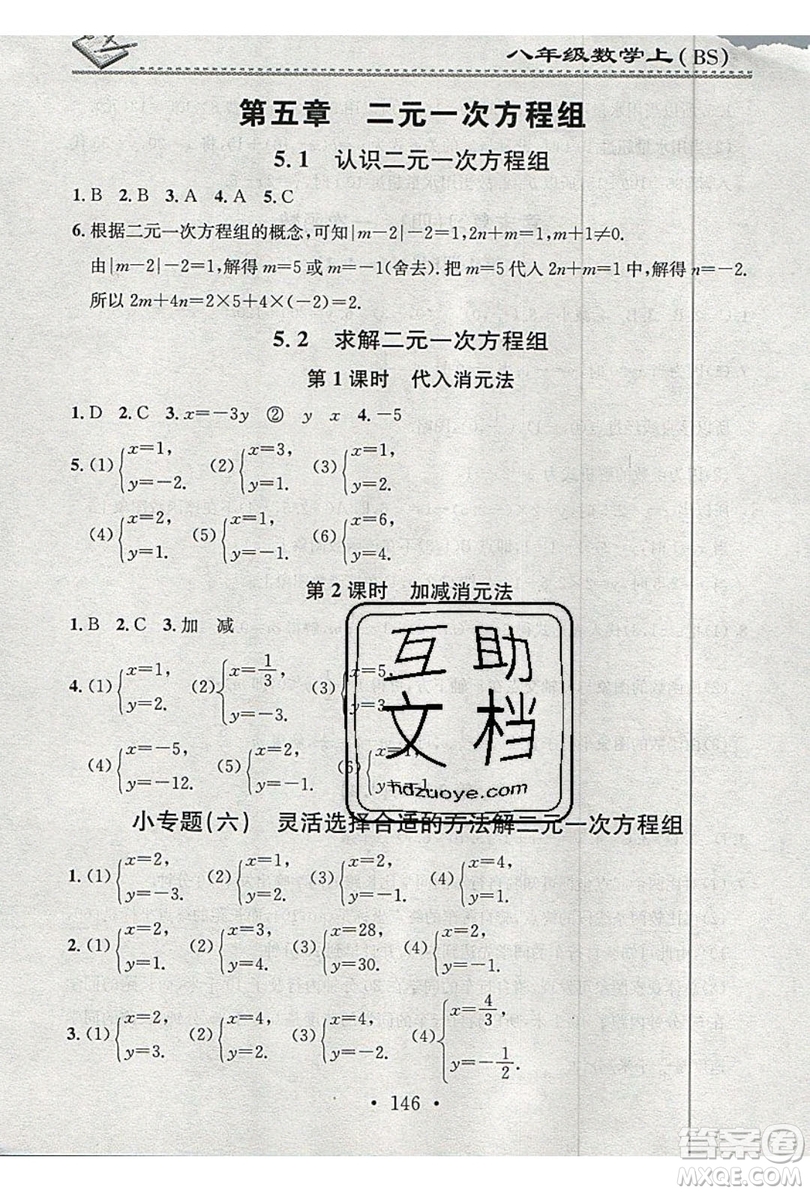 八年级数学上(BS)
第五章 二元一次方程组
5.1 认识二元一次方程组
1.B 2.B 3.A 4.A 5.C
6.根据二元一次方程组的概念,可知|m-2|-2=1,2n+m=1,m+1≠0.
由|m-2|-2=1,解得m=5或m=-1(舍去).把m=5代入2n+m=1,解得n=-2.
所以2m+4n=2×5+4×(-2)=2.
5.2 求解二元一次方程组
第1课时 代入消元法
1.D 2.C 3.x=-3y ② y x 4.-5
5.(1){x=1, y=-2. (2){x=3, y=1. (3){x=1, y=2.
(4){x=2, y=1. (5){x=1, y=-1. (6){x=6, y=4.
第2课时 加减消元法
1.B 2.C 3.加 减
4.(1){x=1, y=2. (2){x=1/3, y=-3. (3){x=5, y=3.
(4){x=-5, y=-12. (5){x=2, (6){x=1, y=-1.
互助
文档
hdzuoye.com
小专题(六) 灵活选择合适的方法解二元一次方程组
1.(1){x=2, y=-3. (2){x=1, y=2. (3){x=2, y=-1. (4){x=4, y=1.
2.(1){x=2, y=3. (2){x=0, y=4. (3){x=28, y=30. (4){x=1, y=-2.
3.(1){x=2, y=3. (2){x=4, y=2. (3){x=4, y=2. (4){x=4/3, y=-1/2.
• 146 •
答案圈
MXQE.COM